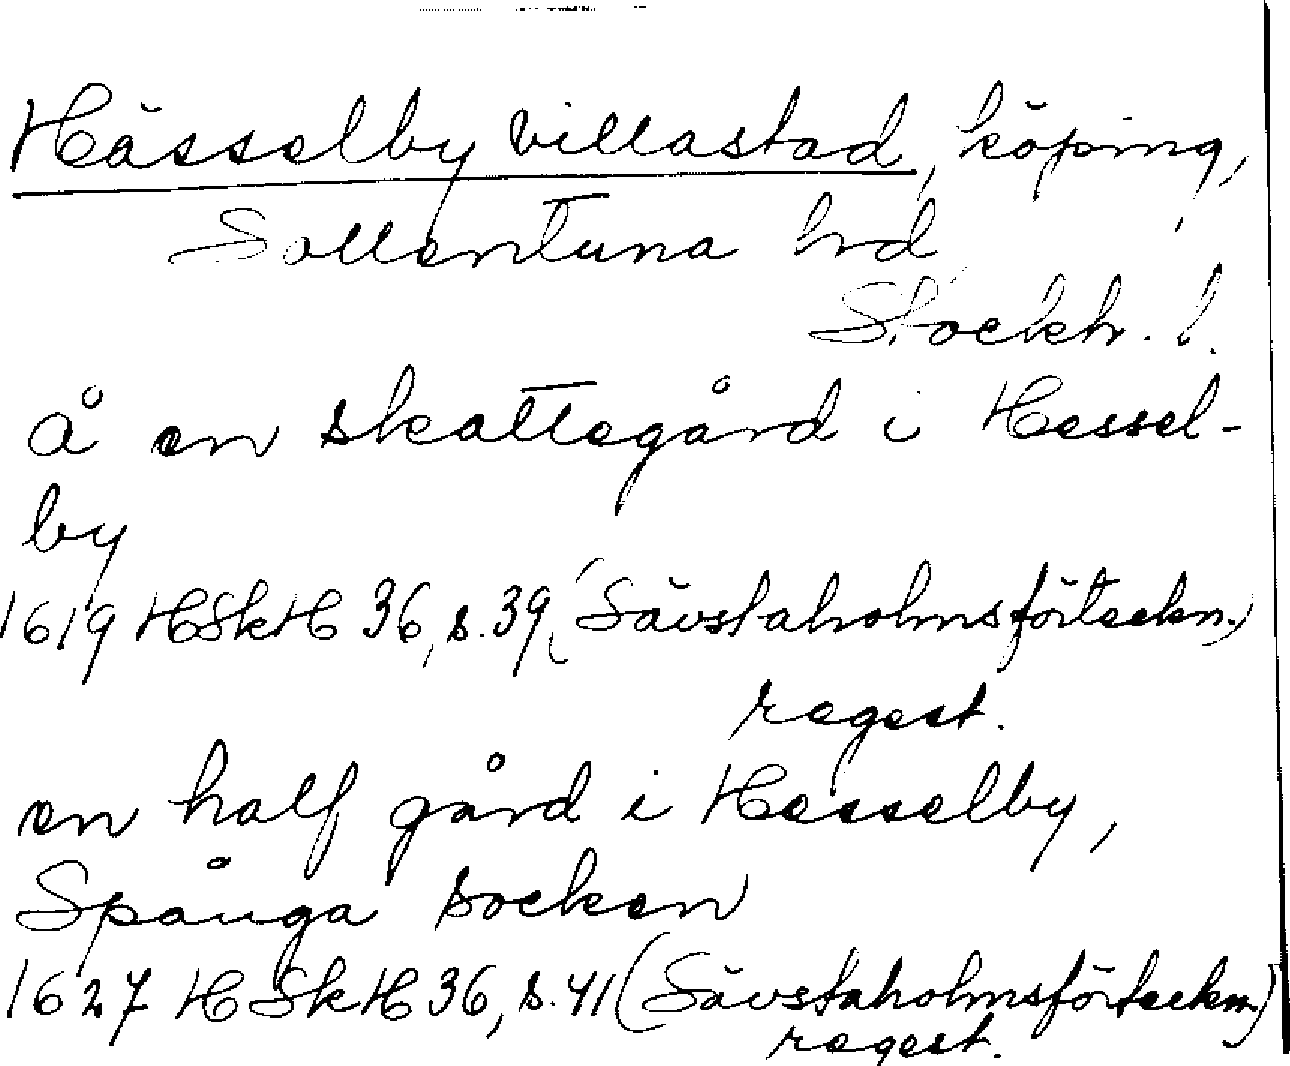 Hässelby villastad, köping,
Sollentuna hrd,
Stockh. l.
å en skattegård i Hessel-
by
1619 HSkH 36, s. 39, (Sävstaholmsförteckn.)
regest.
en half gård i Hesselby,
Spånga socken
1627 HSkH 36, s. 41 (Sävstaholmsförteckn.)
regest.